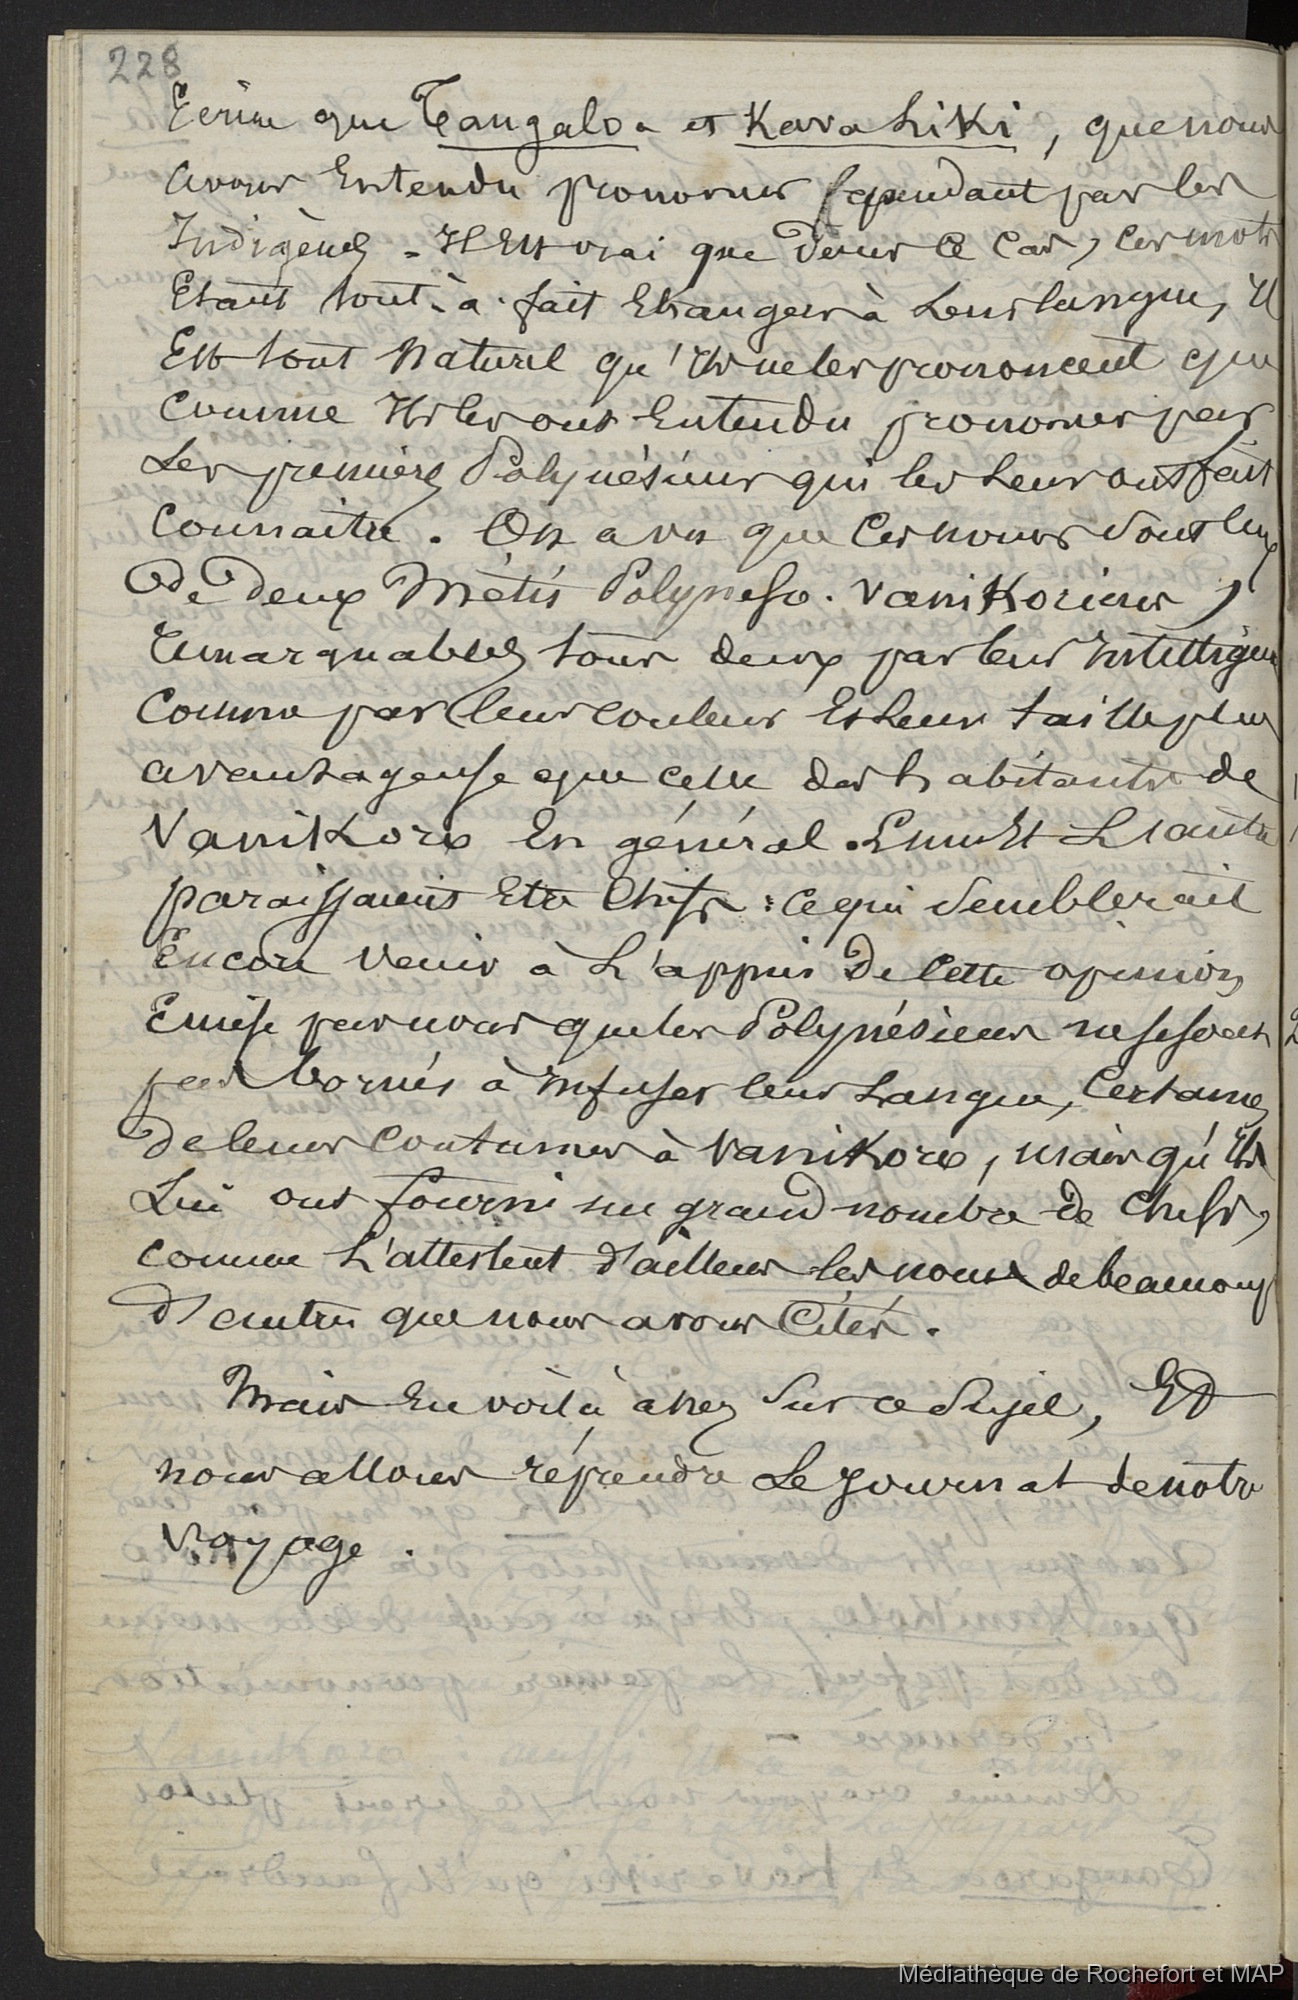 228
Ecrire que Tangaloa et Kavaliki, que nous
avons Entendu prononcer cependant par les
Indigènes - Il Est vrai que dans ce cas, ces mots
Etant tout-à-fait Etrangers à leur langue, Il
Est tout Naturel qu'Ils ne les prononcent que
comme Ils les ont Entendu prononcer par
les premiers Polynésiens qui les leur ont fait
connaitre. On a vu que ces noms sont ceux
De Deux Métis Polyneso-Vanikoriens,
Remarquables tous deux par leur Intelligence
comme par leur couleur Et leur taille plus
avantageuse que celle des habitants de
Vanikoro En général. L'un Et L'autre
paraissaient Etre Chefs: ce qui semblerait
Encore venir à L'appui De cette opinion
Emise par nous que les Polynésiens ne se sont
pas bornés à Infuser leur Langue, Certaines
De leurs Coutumes à Vanikoro, mais qu'Ils
Lui ont fourni un grand nombre de Chefs,
comme L'attestent d'ailleurs les noms de beaucoup
D'autres que nous avons Cités.
Mais En voilà assez sur ce sujet, Et
nous allons réprendre Le Journal de notre
Voyage.
Médiathèque de Rochefort et MAP